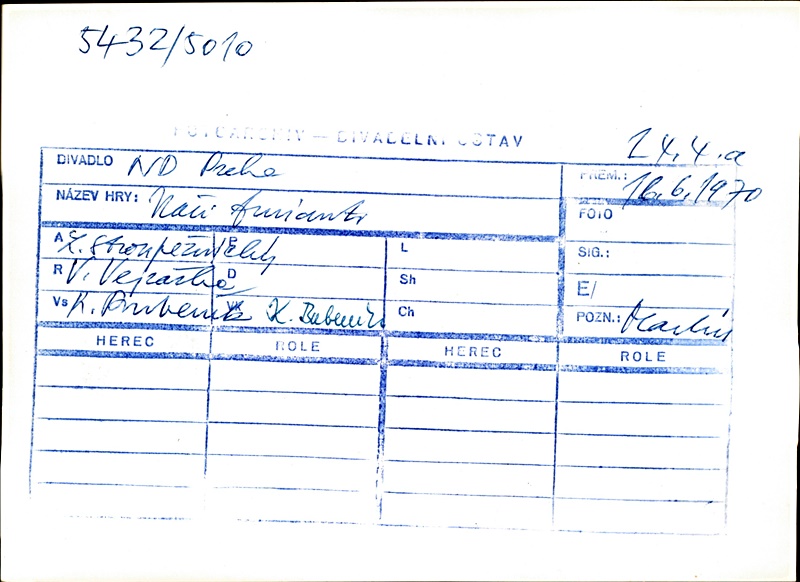 5432/5010
FOTOARCHIV — DIVADELNÍ ÚSTAV
24.4.a
DIVADLO ND Praha
PREM.: 16.6.1970
NÁZEV HRY: Naši furianti
FOTO
A L. Stroupežnický
L
SIG.:
R V. Vejražka D
Sh
E/
Vs K. Bubeník K. Bubeník
Ch
POZN.:
HEREC ROLE HEREC ROLE